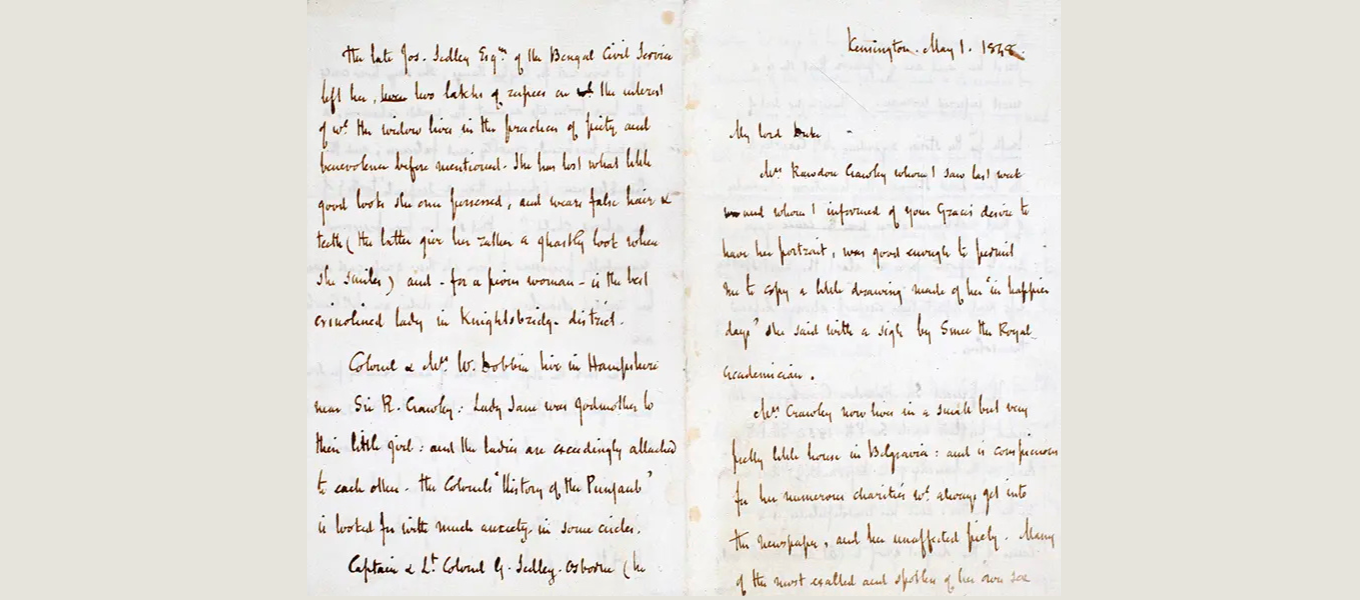 The late Jos. Sedley Esqre of the Bengal Civil Service
left her, two lakhs of rupees on the interest
of wh the widow lives in the practices of piety and
benevolence before mentioned. She has lost what little
good looks she once possessed, and wears false hair &
teeth (the latter give her rather a ghastly look when
she smiles) and - for a pious woman - is the best
crinolined lady in Knightsbridge district.
Colonel & Mrs W. Dobbin live in Hampshire
near Sir R. Crawley: Lady Jane was godmother to
their little girl: and the ladies are exceedingly attached
to each other. The Colonel's "History of the Punjaub"
is looked for with much anxiety in some circles.
Captain & Lt. Colonel G. Sedley-Osborne (he
Kensington. May 1. 1848.
My lord Duke
Mrs Rawdon Crawley whom I saw last week
and whom I informed of your Grace's desire to
have her portrait, was good enough to permit
me to copy a little drawing made of her "in happier
days" she said with a sigh by Smee the Royal
Academician.
Mrs Crawley now lives in a small but very
pretty little house in Belgravia: and is conspicuous
for her numerous charities wh always get into
the newspapers, and her unaffected piety. Many
of the most exalted and spotless of her own sex